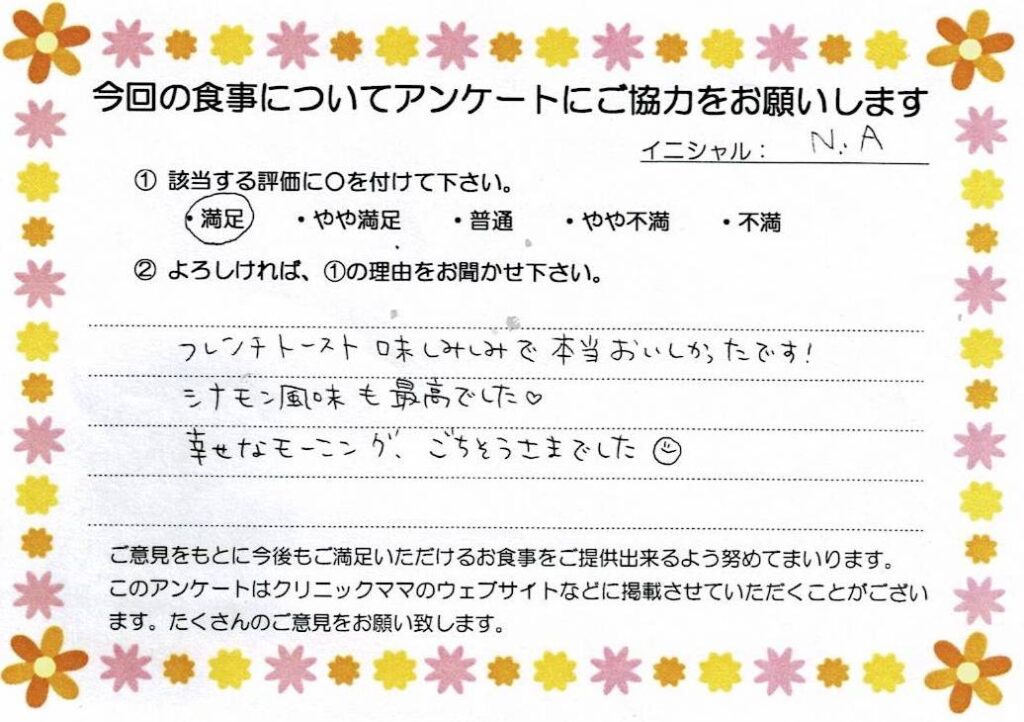 今回の食事についてアンケートにご協力をお願いします
イニシャル： N.A
① 該当する評価に〇を付けて下さい。
・満足 ・やや満足 ・普通 ・やや不満 ・不満
② よろしければ、①の理由をお聞かせ下さい。
フレンチトースト 味しみしみで 本当おいしかったです！
シナモン風味も最高でした♡
幸せなモーニング、ごちそうさまでした☺
ご意見をもとに今後もご満足いただけるお食事をご提供出来るよう努めてまいります。
このアンケートはクリニックママのウェブサイトなどに掲載させていただくことがござい
ます。たくさんのご意見をお願い致します。